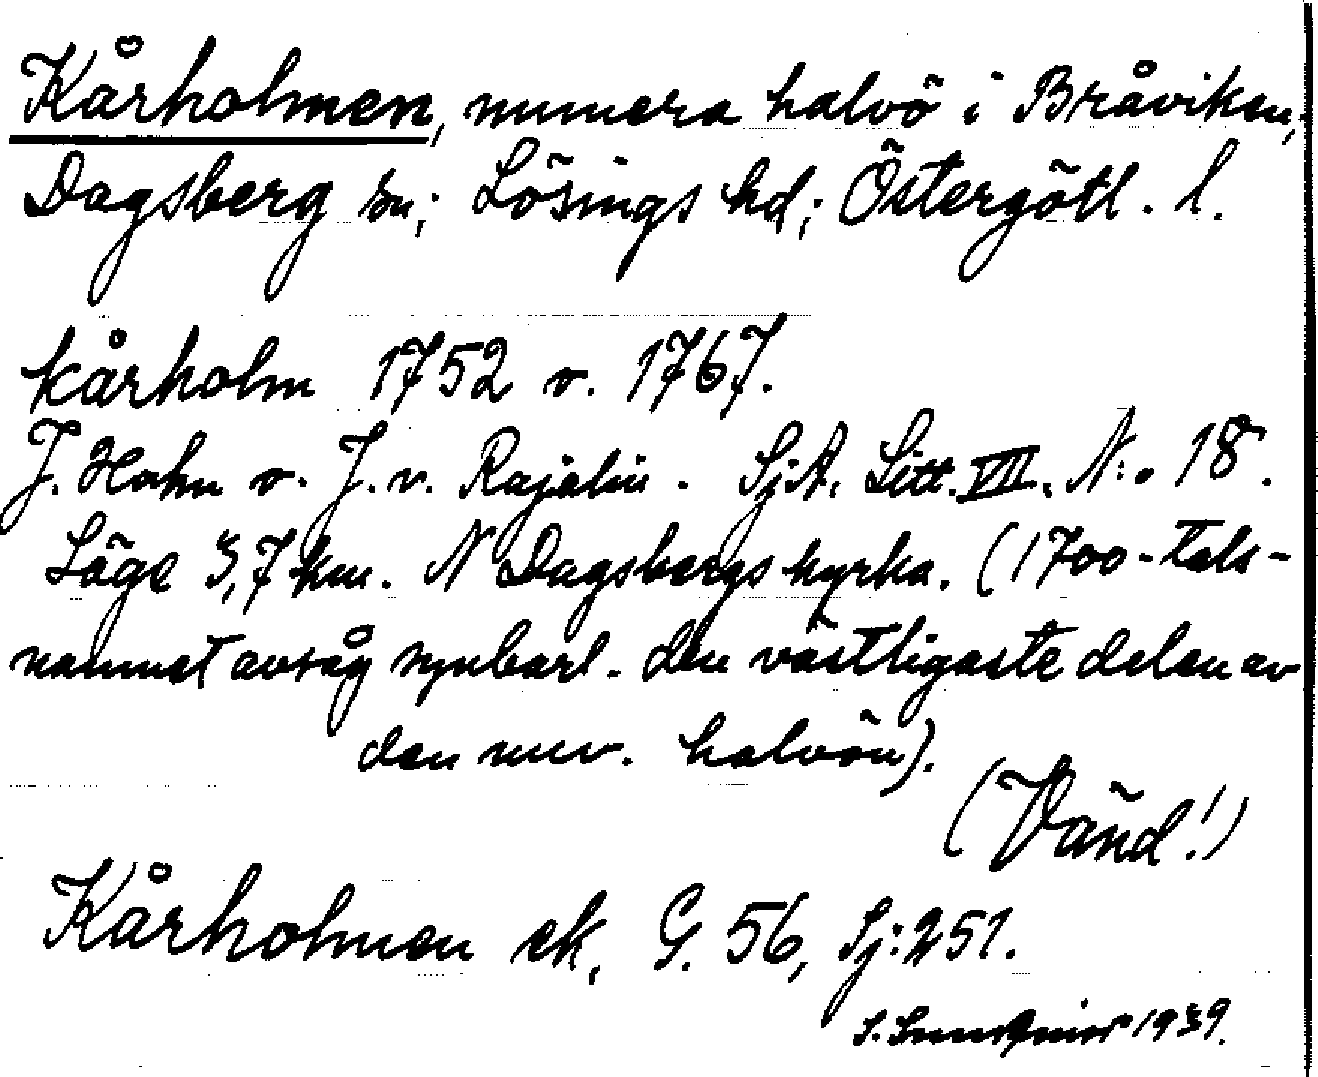 Kårholmen, numera halvö i Bråviken,
Dagsberg sn; Lösings hd; Östergötl. l.
kårholm 1752 o. 1767.
J. Hahn o. J. v. Rajalin. SjA. Litt. VII. N:o 18.
Läge 3,7 km. N Dagsbergs kyrka. (1700-tals-
namnet avsåg synbarl. den västligaste delen av
den nuv. halvön).
(Vänd!)
Kårholmen ek, G. 56, Sj:251.
S. 1939.